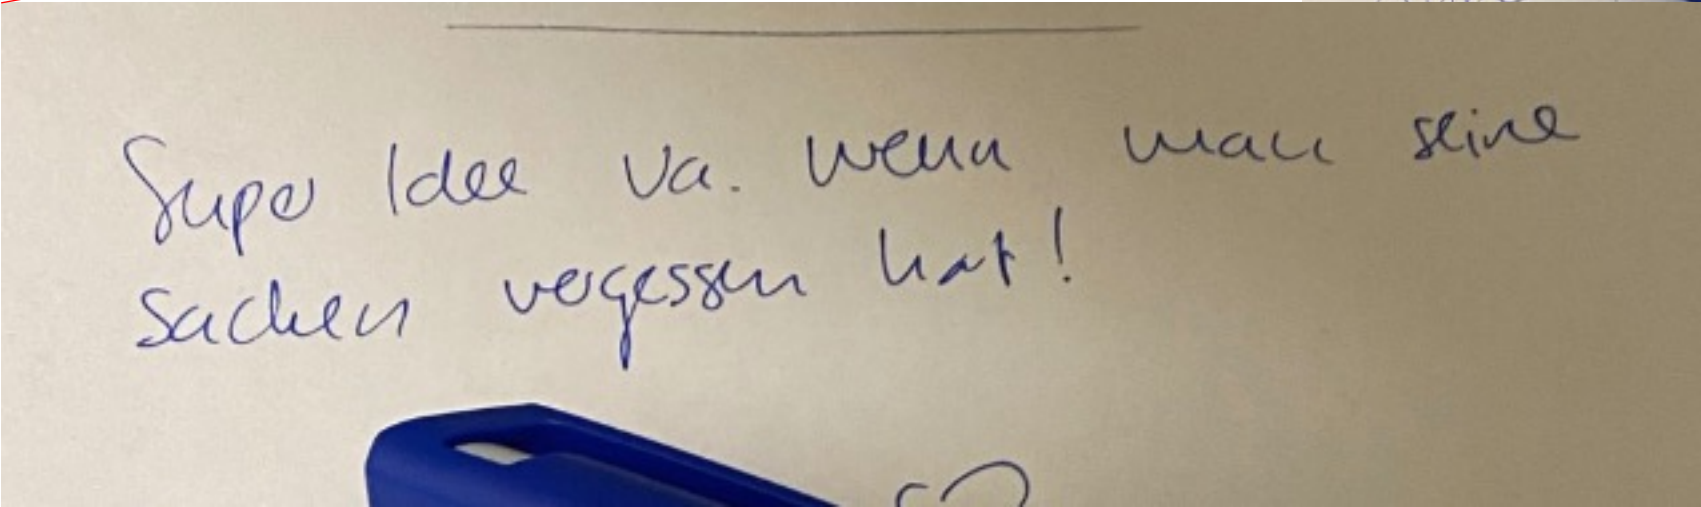 Super Idee va. wenn man seine
Sachen vergessen hat!